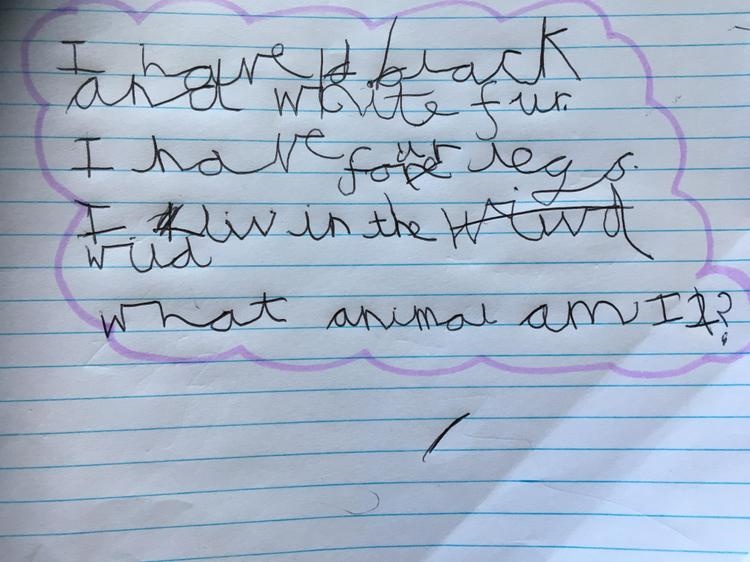 I have black
and white fur.
I have four legs.
I liv in the
wild
What animal am I?